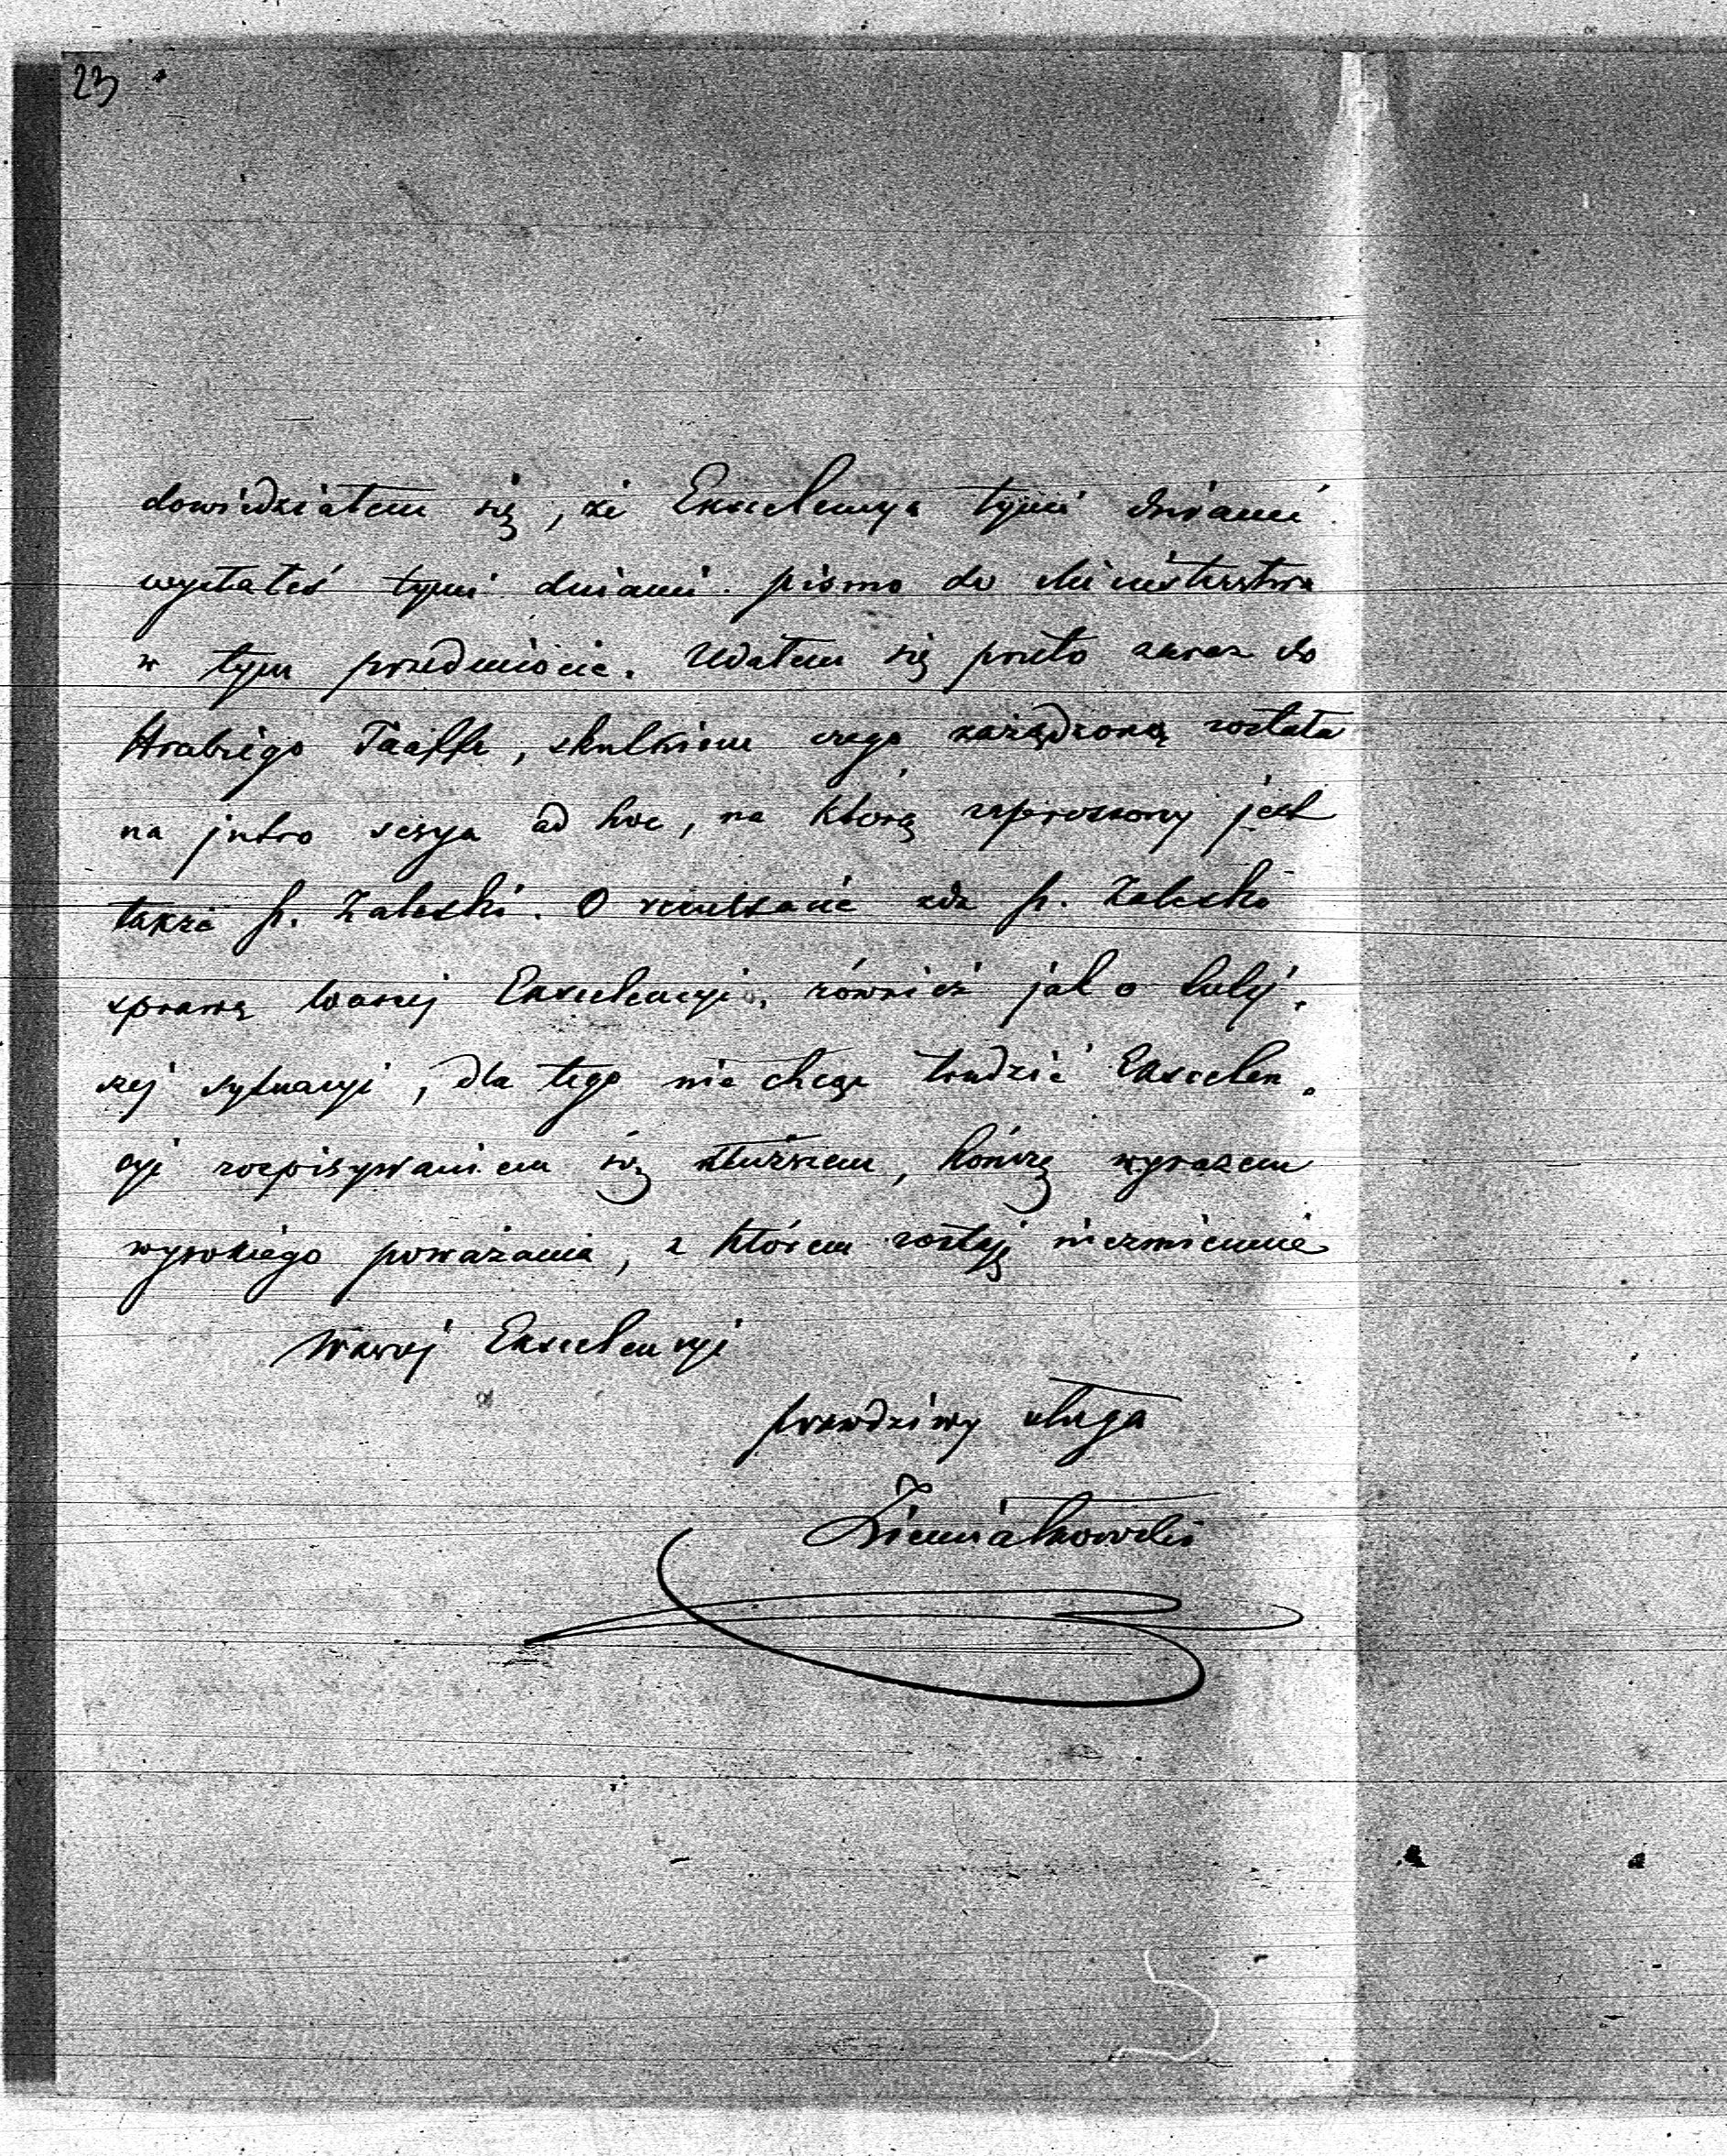 23
dowiedziałem się, że Excelencya tymi dniami
wysłałeś tymi dniami pismo do Ministerstwa
w tym przedmiocie. Udałem się przeto zaraz do
Hrabiego Taaffe, skutkiem czego zarządzoną została
na jutro sesya ad hoc, na którą zaproszony jest
także p. Zaleski. O rezultacie zda p. Zaleski
sprawę Waszej Excelencyi, również jak o tutej-
szej sytuacyi, dla tego nie chcąc trudzić Excelen-
cyi rozpisywaniem się dłuższem, kończę wyrazem
wysokiego poważania, z którem zostaję niezmiennie
Waszej Excelencyi
prawdziwy sługa
Ziemiałkowski